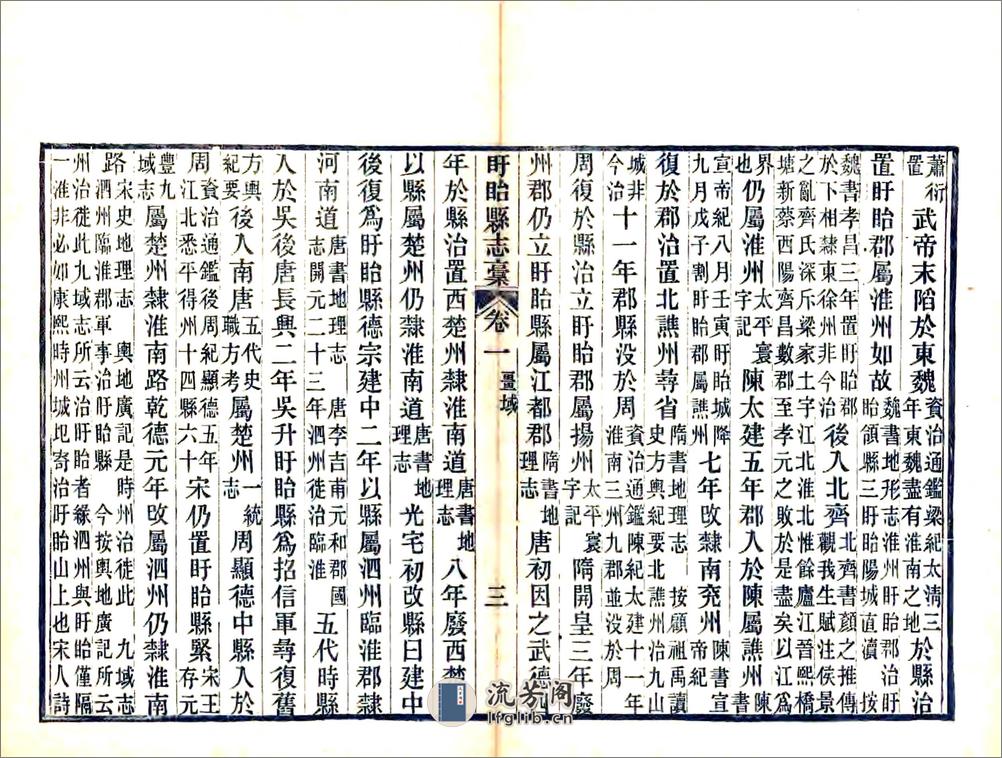 蕭衍置武帝末陷於東魏資治通鑑梁紀太清三年東魏盡有淮南之地於縣治
置盱眙郡屬淮州如故魏書地形志盱眙郡治盱眙領縣三盱眙陽城直瀆 按
魏書孝昌三年置盱眙郡於下相隸東徐州非今治後入北齊北齊書顏之推傳觀我生賦注侯景
之亂齊氏深斥梁家土宇江北淮北惟餘廬江晉熙橋塘新蔡西陽齊昌數郡至孝元之敗於是盡矣以江爲
界也仍屬淮州太平寰宇記陳太建五年郡入於陳屬譙州陳書
宣帝紀八月壬寅盱眙城降九月戊子割盱眙郡屬譙州七年改隸南兗州陳書宣帝紀
復於郡治置北譙州尋省隋書地理志 按顧祖禹讀史方輿紀要北譙州治九山
城非今治十一年郡縣没於周資治通鑑陳紀太建十一年淮南三州九郡並没於周
周復於縣治立盱眙郡屬揚州太平寰宇記隋開皇三年廢
州郡仍立盱眙縣屬江都郡隋書地理志唐初因之武德四
盱眙縣志稾 卷一 畺域 三
年於縣治置西楚州隸淮南道唐書地理志八年廢西楚州
以縣屬楚州仍隸淮南道唐書地理志光宅初改縣曰建中
後復爲盱眙縣德宗建中二年以縣屬泗州臨淮郡隸
河南道唐書地理志 唐李吉甫元和郡國志開元二十三年泗州徙治臨淮五代時縣
入於吳後唐長興二年吳升盱眙縣爲招信軍尋復舊
方輿紀要後入南唐五代史職方考屬楚州一統志周顯德中縣入於
周資治通鑑後周紀顯德五年江北悉平得州十四縣六十宋仍置盱眙縣緊宋王存元
豐九域志屬楚州隸淮南路乾德元年改屬泗州仍隸淮南
路宋史地理志 輿地廣記是時州治徙此 九域志泗州臨淮郡軍事治盱眙縣 今按輿地廣記所云
州治徙此九域志所云治盱眙者緣泗州與盱眙僅隔一淮非必如康熙時州城圮寄治盱眙山上也宋人詩
流芳阁
lfglib.com